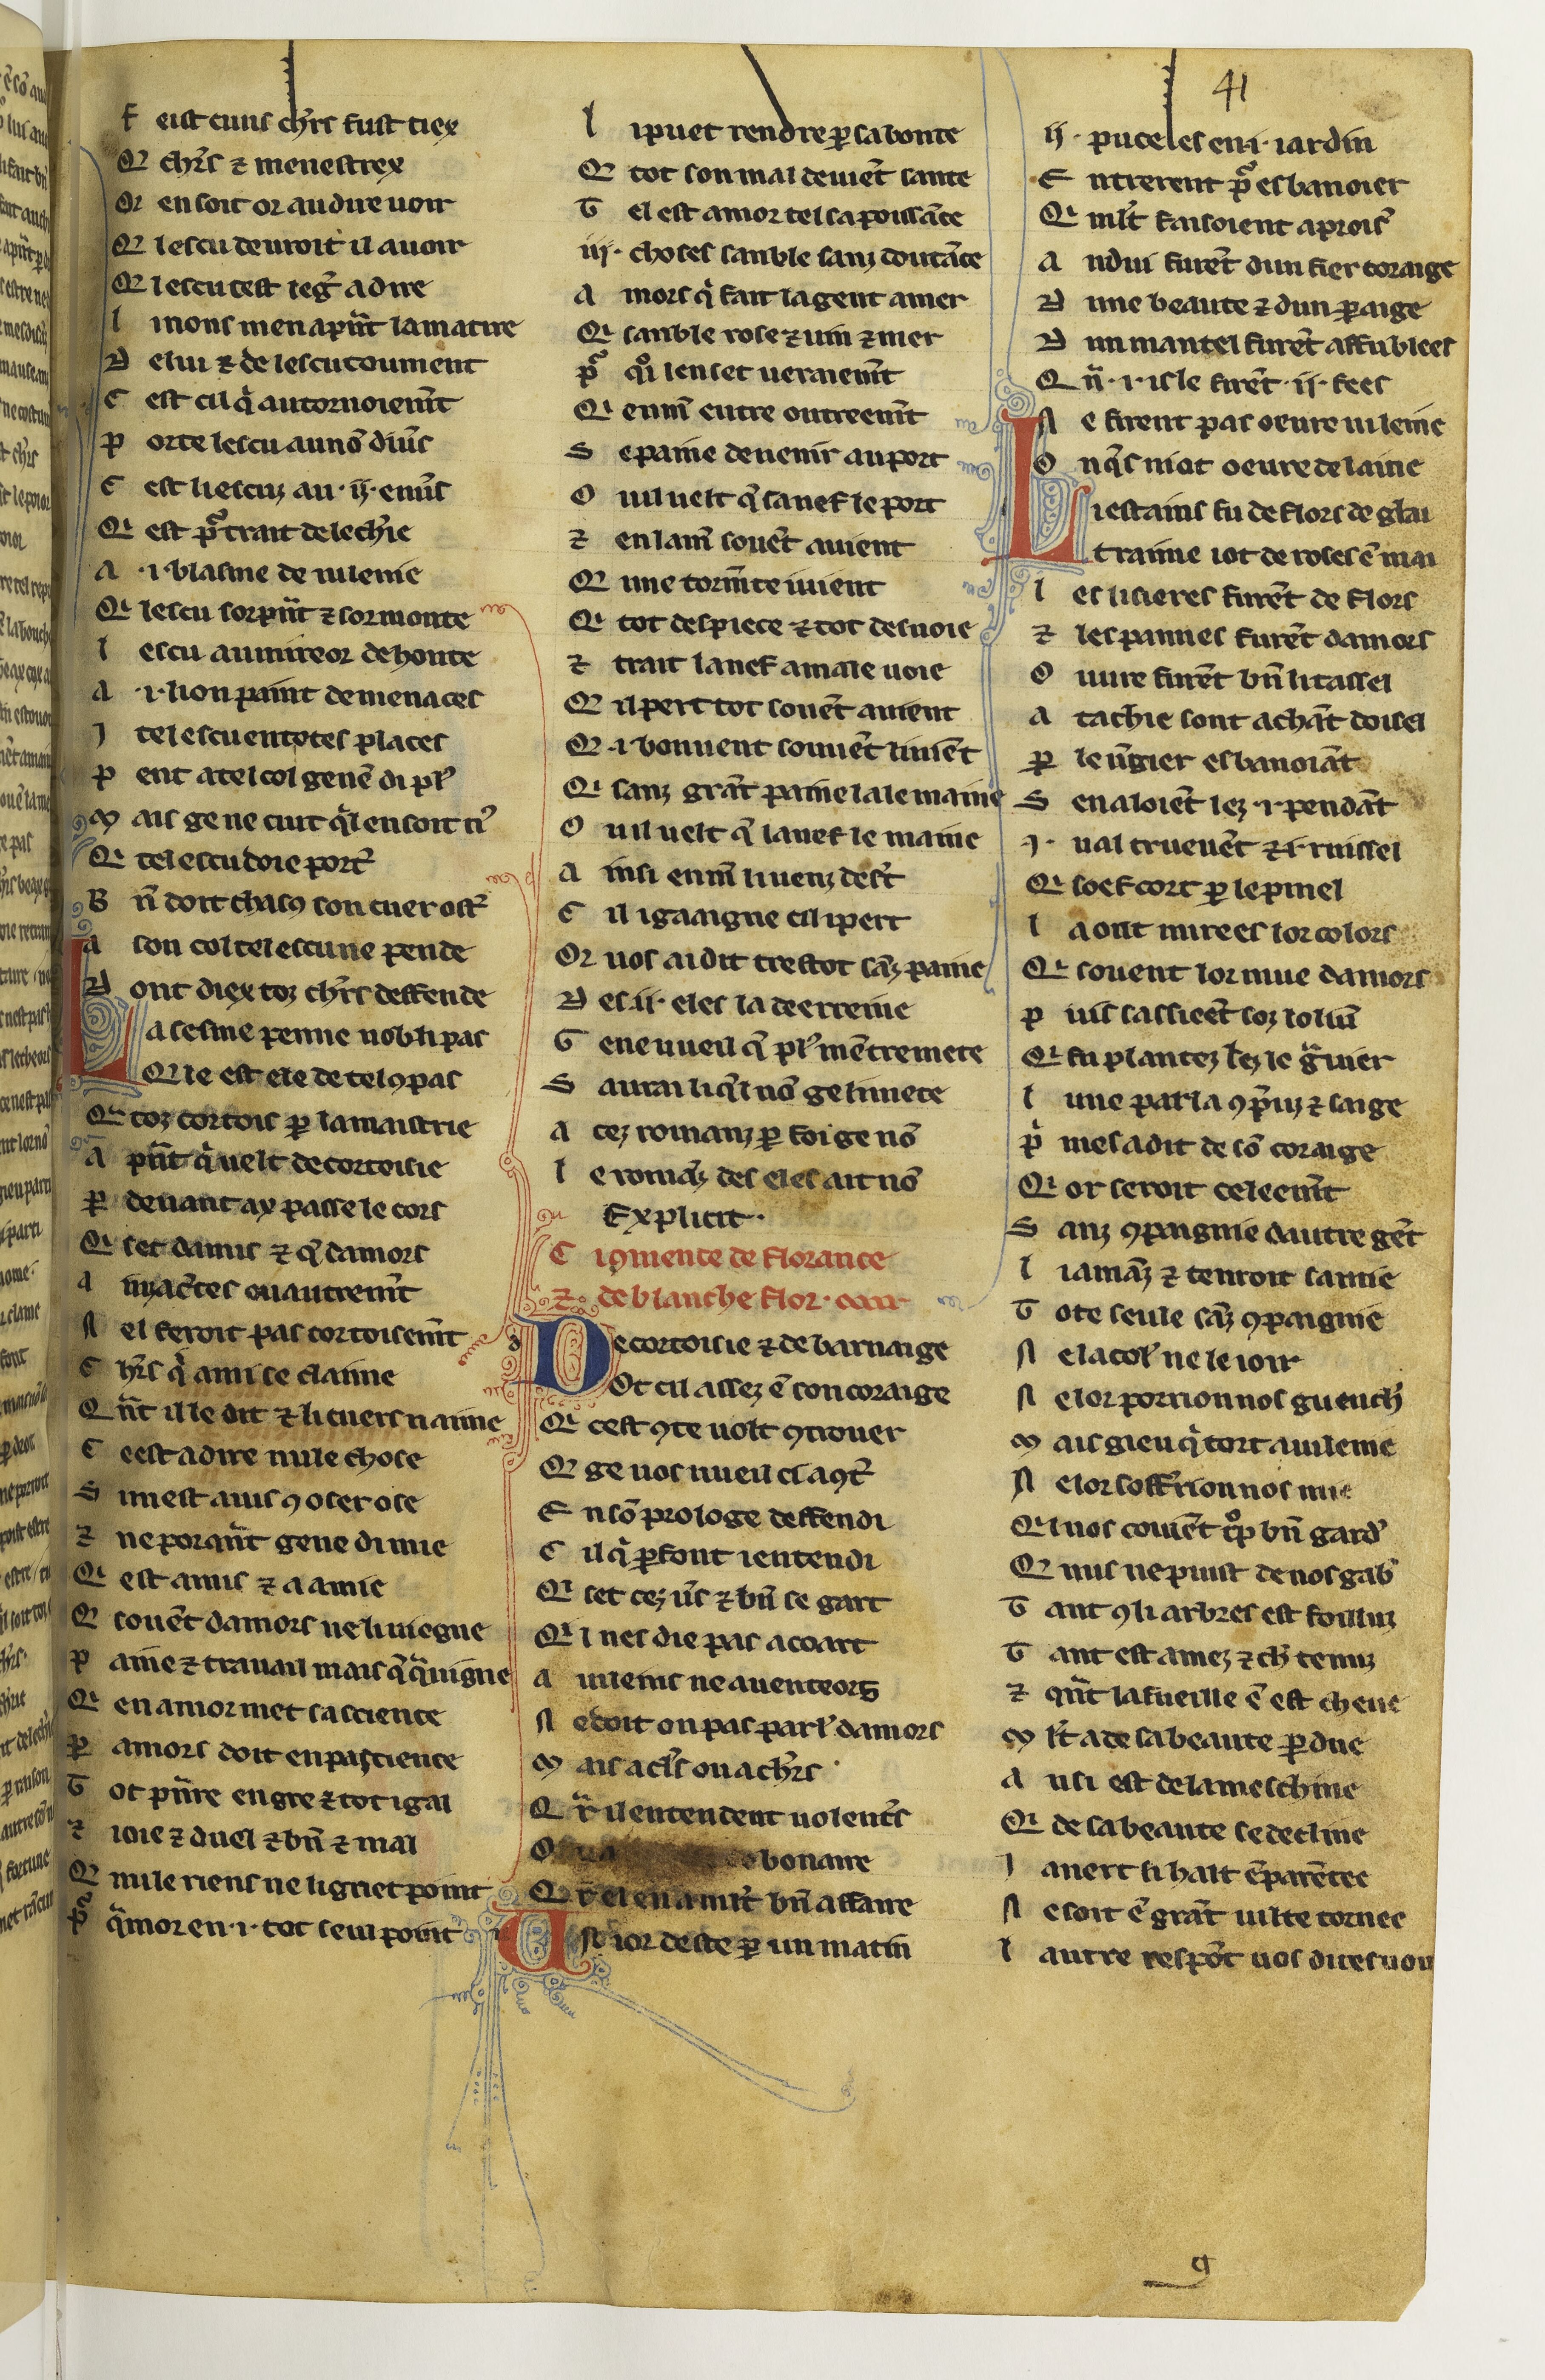 41
F eist cuns chrs fust tiex
Q chrs ⁊ menestrex
Q en soit or au dire uoir
Q lescu deuroit il auoir
Q lescu cest leg̃ a dire
l i nons men aprñt la matire
D e lui ⁊ de lescu coument
C est cil q̃ au tornoiem̃t
p orte lescu au nõ diũs
C est li escuz au ·ij· enũs
Q est p̃trait de lech̃ie
A ·i· blasme de uilenie
Q lescu sorprñt ⁊ sormonte
l escu au mireor de honte
A ·i· lion paint de menaces
I tel escu en totes places
p ent a tel col ge nẽ di pl᷒
M ais ge ne cuit q̃l en soit ti᷒
Q tel escu doie port᷒
B ñ doit chascꝰ son cuer ost᷒
A son col tel escu ne pende
D ont diex toz chrs deffende
L a sesme penne nobli pas
Q le est ele de tel ꝯpas
Q toz cortois ꝑ la maistrie
A prñt q̃ uelt de cortoisie
ꝑ deuant ax passe le cors
Q set damis ⁊ q̃ damors
A inz actes ou autrem̃t
N el feroit pas cortoisem̃t
C hrs q̃ ami se claime
Q ñt il le dit ⁊ li cuers naime
C e est a dire nule chose
S i mest auis ꝯ oser ose
⁊ ne porqñt ge ne di mie
Q est amis ⁊ a amie
Q souẽt damors ne li uiegne
p aine ⁊ trauail mais q̃ q̃ uigne
Q en amor met sa science
ꝑ amors doit en pascience
T ot prñre en gre ⁊ tot igal
⁊ ioie ⁊ duel ⁊ bñ ⁊ mal
Q nule riens ne li griet point
p̃ q̃ mor en ·i· tot seul point
l i puet rendre ꝑ sa bonte
Q tot son mal deuiẽt sante
T el est amor tel sa poissãce
iij· choses sanble sanz doutãce
A mors q̃ fait la gent amer
Q sanble rose ⁊ uin ⁊ mer
p̃ qͦi len set ueraiem̃t
Q en m̃ entre outreem̃t
S e paine de uenir au port
O u il uelt q̃ sa nef le port
⁊ en la m̃ souẽt auient
Q une torm̃te i uient
Q tot despiece ⁊ tot desuoie
⁊ trait la nef a male uoie
Q il pert tot souẽt auient
Q ·i· bon uent souuẽt li uiẽt
Q sanz grãt paine la le maine
O u il uelt q̃ la nef le maine
A insi en m̃ li uenz des᷒t
C il i gaaigne cil i pert
Or uos ai dit trestot sãz paine
D es ·ii· eles la deerreine
G e ne uueil q̃ pl᷒ mẽtremete
S aurai li q̃l nõ ge li mete
A cez romanz ꝑ foi ge nõ
l e romãz des eles ait nõ
Explicit·
C i ꝯmence de florance
⁊ de blanche flor·
D e cortoisie ⁊ de barnaige
Ot cil assez ẽ son coraige
Q cest ꝯte uolt ꝯtrouer
Q ge uos uueil ci aꝯt᷒
E n sõ prologe deffendi
C il q̃ ꝑfont i entendi
Q set cez ũs ⁊ bñ se gart
Q i nes die pas a coart
A uileins ne a uenteors
N e doit on pas parl᷒ damors
M ais a cl̃s ou a chrs
Q r̃ il entendent uolent᷒s
O bonaire
Q r̃ el en a mĩt bñ affaire
U N ior deste ꝑ un matin
ij· puceles en ·i· iardin
E ntrerent p̃ esbanoier
Q mĩt faisoient a prois᷒
A ndui furẽt dun fier coraige
D une beaute ⁊ dun ꝑaige
D un mantel furẽt affublees
Q ñ ·i· isle firẽt ·ii· fees
N e firent pas oeure uileine
O nq̃s niot oeure de laine
L i estains fu de flors de glai
traime i ot de roses ẽ mai
l es lisieres furẽt de flors
⁊ les pannes furẽt damors
O uure furẽt bñ li tassel
A tachie sont a chãt doisel
ꝑ le ũgier esbanoiãt
S en aloiẽt lez ·i· pendãt
·I· ual trueuẽt ⁊ ·i· ruissel
Q soef cort ꝑ le pinel
l a ont mirees lor colors
Q souent lor mue damors
p uis sassieẽt soz lolim̃
Q fu plantez lez le g̃uier
l une parla ꝯ prouz ⁊ saige
p̃ mes a dit de sõ coraige
Q or seroit celeem̃t
S anz ꝯpaignie dautre gẽt
l i amãz ⁊ tenroit samie
T ote seule sãz ꝯpaignie
N e lacol᷒ ne le ioir
N e lor porrion nos gu euch᷒
M ais gieu q̃ tort a uilenie
N e lor sofferrion nos mie
Q l uos couiẽt tͦp bñ gard᷒
Q nus ne puist de nos gab᷒
T ant ꝯ li arbres est foilluz
T ant est amez ⁊ ch᷒ tenuz
⁊ qñt la fueille ẽ est cheue
M l̃t a de sa beaute ꝑdue
A usi est de la meschine
Q de sa beaute se decline
I a nert si halt ẽparẽtee
N e soit ẽ grãt uilte tornee
l autre respõt uos dites uoir
g